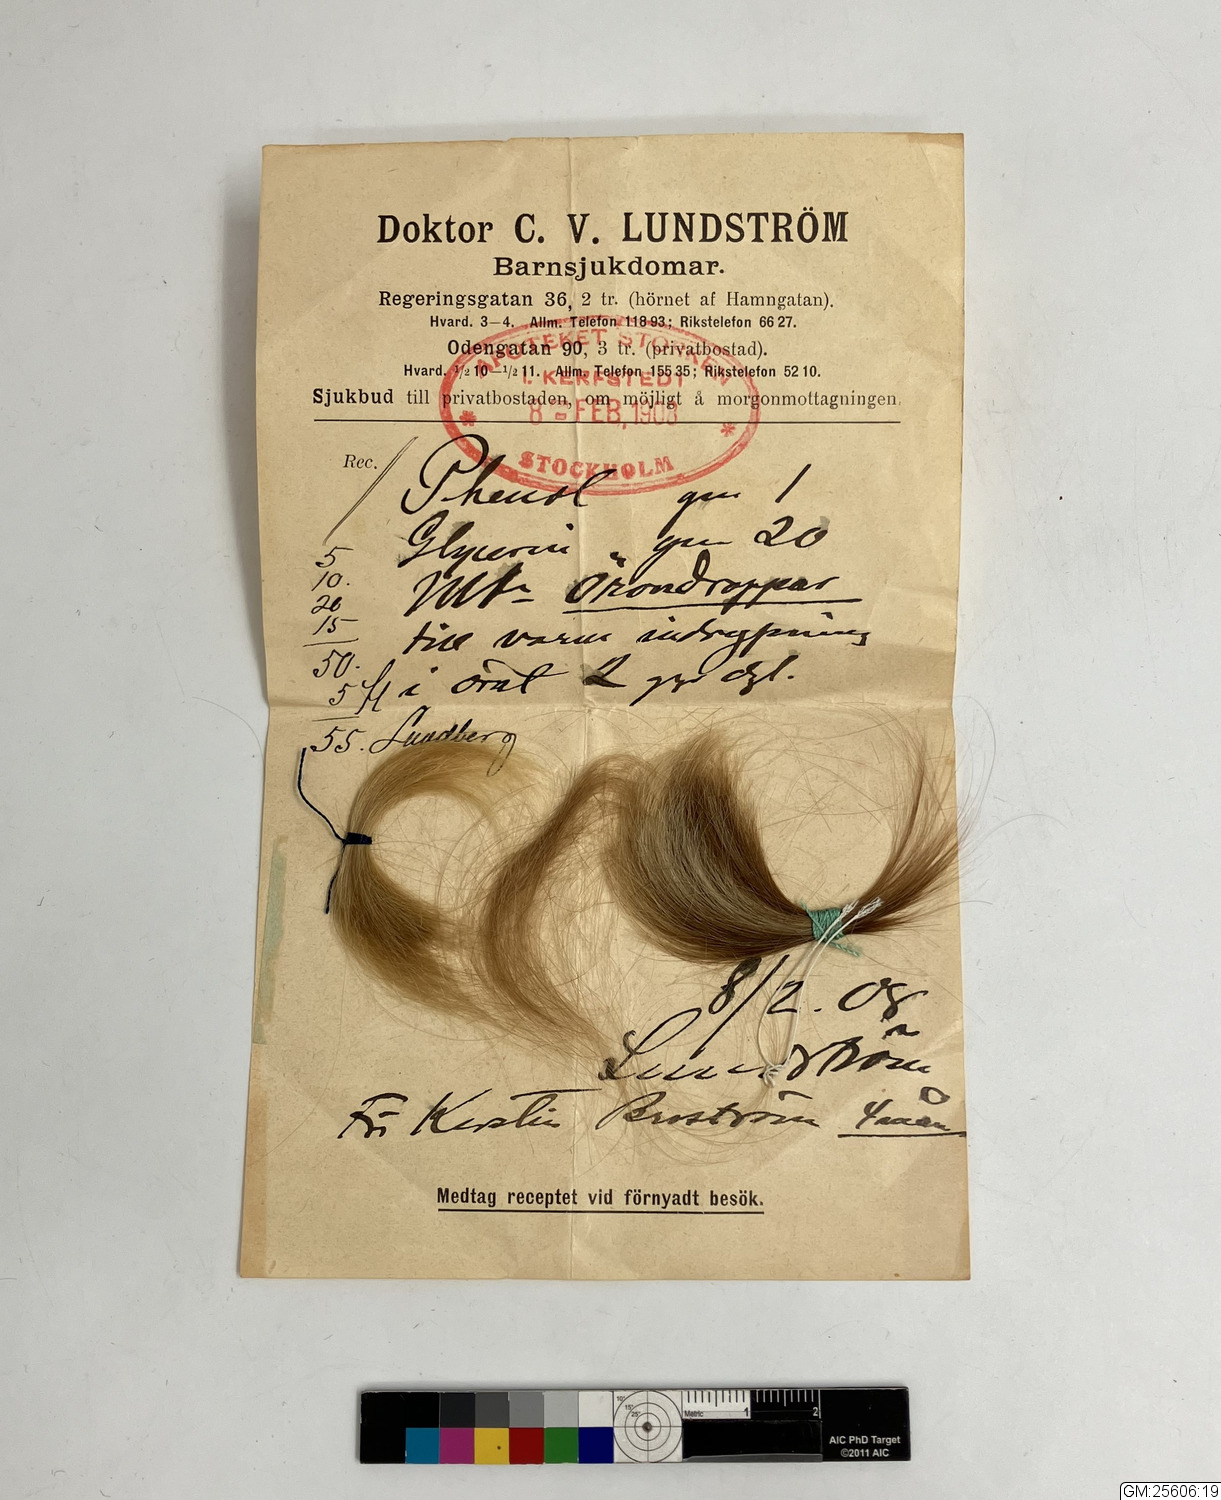 Doktor C. V. LUNDSTRÖM
Barnsjukdomar.
Regeringsgatan 36, 2 tr. (hörnet af Hamngatan).
Hvard. 3—4. Allm. Telefon 118 93; Rikstelefon 66 27.
Odengatan 90, 3 tr. (privatbostad).
Hvard. ½10—½11. Allm. Telefon 155 35; Rikstelefon 52 10.
Sjukbud till privatbostaden, om möjligt å morgonmottagningen.
APOTEKET STORKEN
I. KERFSTEDT
8 - FEB, 1908
STOCKHOLM
Rec. Phenol gm 1
5 Glycerin gm 20
10. Mf. Örondroppar
20
15 till varm indrypning
50.
5 fl i örat 2 ggr dgl.
55. Lundberg
8/2. 08
Lundström
Fr. Kerstin Broström
Medtag receptet vid förnyadt besök.
10°
15°
25°
Metric 1 2
AIC PhD Target
©2011 AIC
GM:25606:19